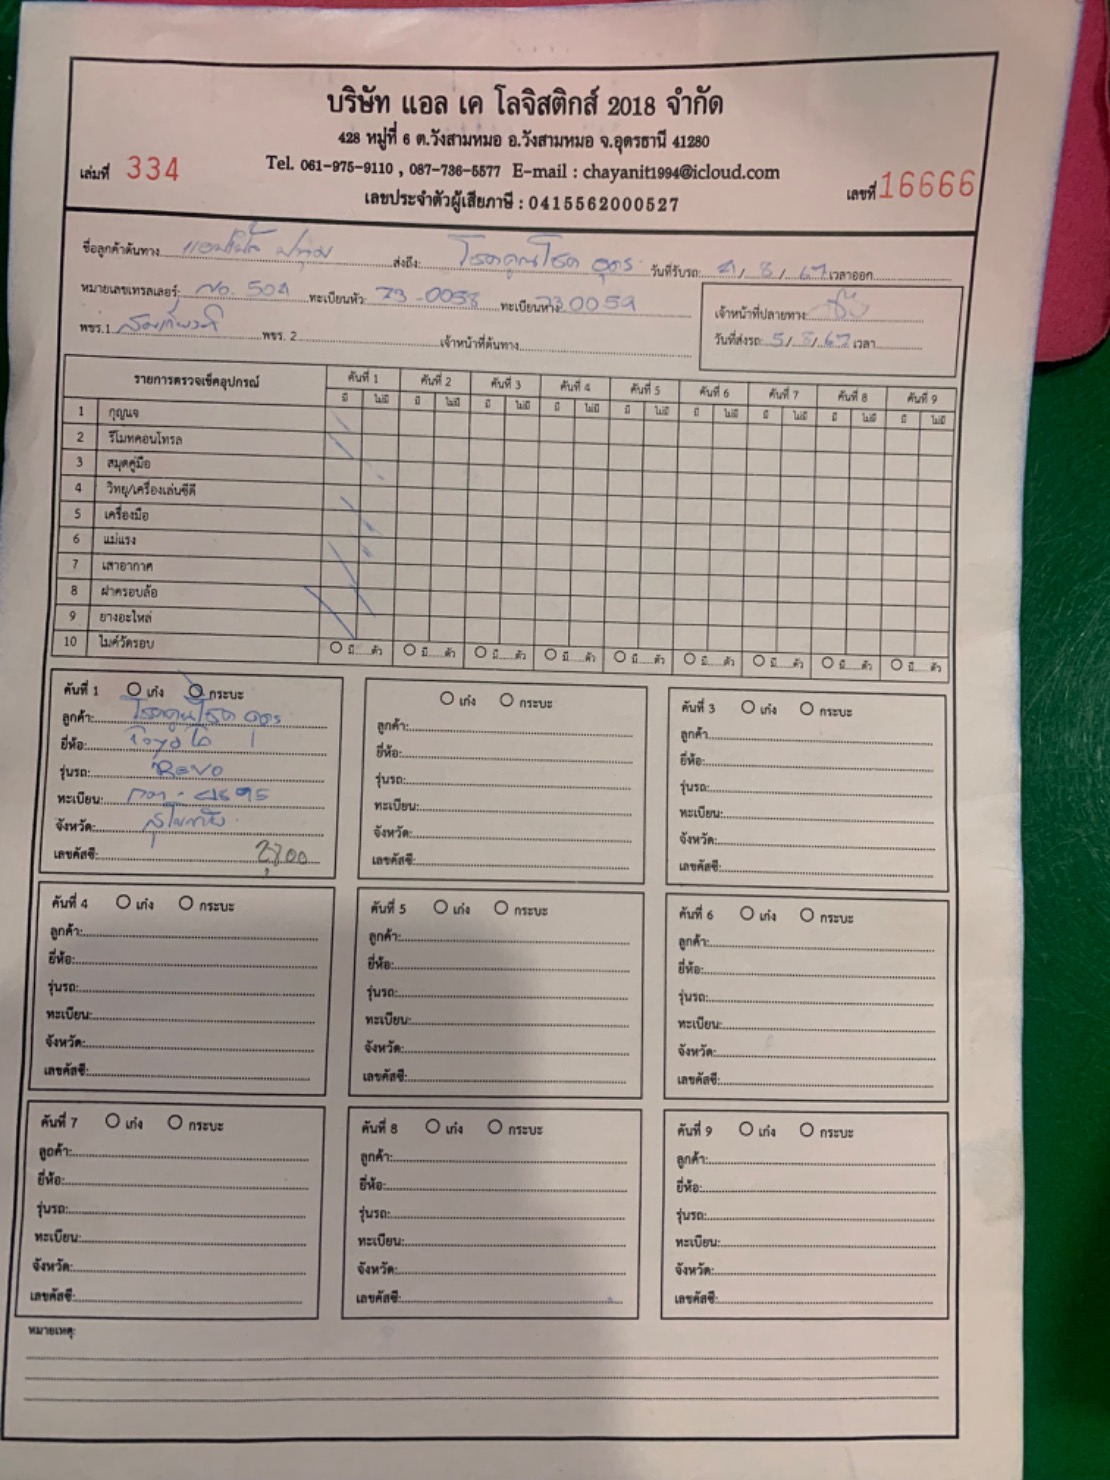 บริษัท แอล เค โลจิสติกส์ 2018 จำกัด
428 หมู่ที่ 6 ต.วังสามหมอ อ.วังสามหมอ จ.อุดรธานี 41280
เล่มที่ 334 Tel. 061-975-9110 , 087-736-5577 E-mail : chayanit1994@icloud.com เลขที่ 16666
เลขประจำตัวผู้เสียภาษี : 0415562000527
ชื่อลูกค้าต้นทาง ส่งถึง: โชคคูณโชค อุดร วันที่รับรถ: 4/8/67 เวลาออก
หมายเลขเทรลเลอร์: No. 504 ทะเบียนหัว: 73-0058 ทะเบียนหาง 730059 เจ้าหน้าที่ปลายทาง:
พขร.1 สมเกียรติ พขร. 2 เจ้าหน้าที่ต้นทาง วันที่ส่งรถ: 5/8/67 เวลา
รายการตรวจเช็คอุปกรณ์ คันที่ 1 คันที่ 2 คันที่ 3 คันที่ 4 คันที่ 5 คันที่ 6 คันที่ 7 คันที่ 8 คันที่ 9
มี ไม่มี มี ไม่มี มี ไม่มี มี ไม่มี มี ไม่มี มี ไม่มี มี ไม่มี มี ไม่มี มี ไม่มี
1 กุญแจ
2 รีโมทคอนโทรล
3 สมุดคู่มือ
4 วิทยุ/เครื่องเล่นซีดี
5 เครื่องมือ
6 แม่แรง
7 เสาอากาศ
8 ฝาครอบล้อ
9 ยางอะไหล่
10 ไมค์วัดรอบ มี.....ตัว มี.....ตัว มี.....ตัว มี.....ตัว มี.....ตัว มี.....ตัว มี.....ตัว มี.....ตัว มี.....ตัว
คันที่ 1 เก๋ง กระบะ
ลูกค้า: โชคคูนโชค อุดร
ยี่ห้อ: Toyota
รุ่นรถ: Revo
ทะเบียน:
จังหวัด: สุโขทัย
เลขคัสซี: 2,700
เก๋ง กระบะ
ลูกค้า:
ยี่ห้อ:
รุ่นรถ:
ทะเบียน:
จังหวัด:
เลขคัสซี:
คันที่ 3 เก๋ง กระบะ
ลูกค้า:
ยี่ห้อ:
รุ่นรถ:
ทะเบียน:
จังหวัด:
เลขคัสซี:
คันที่ 4 เก๋ง กระบะ
ลูกค้า:
ยี่ห้อ:
รุ่นรถ:
ทะเบียน:
จังหวัด:
เลขคัสซี:
คันที่ 5 เก๋ง กระบะ
ลูกค้า:
ยี่ห้อ:
รุ่นรถ:
ทะเบียน:
จังหวัด:
เลขคัสซี:
คันที่ 6 เก๋ง กระบะ
ลูกค้า:
ยี่ห้อ:
รุ่นรถ:
ทะเบียน:
จังหวัด:
เลขคัสซี:
คันที่ 7 เก๋ง กระบะ
ลูกค้า:
ยี่ห้อ:
รุ่นรถ:
ทะเบียน:
จังหวัด:
เลขคัสซี:
คันที่ 8 เก๋ง กระบะ
ลูกค้า:
ยี่ห้อ:
รุ่นรถ:
ทะเบียน:
จังหวัด:
เลขคัสซี:
คันที่ 9 เก๋ง กระบะ
ลูกค้า:
ยี่ห้อ:
รุ่นรถ:
ทะเบียน:
จังหวัด:
เลขคัสซี:
หมายเหตุ: